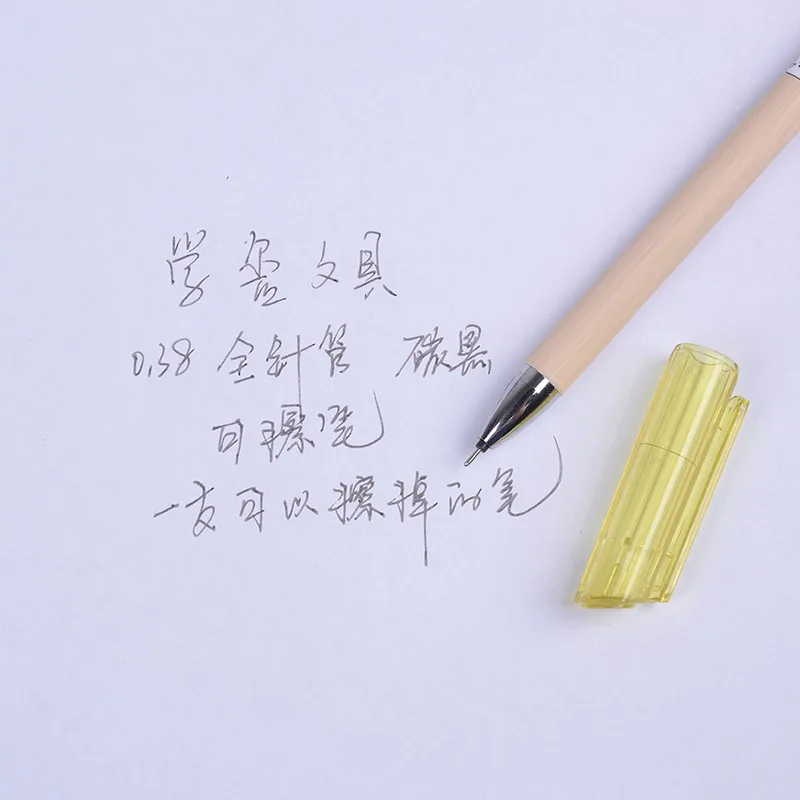 学盉文具
0.38 全针管 碳黑
可擦笔
一支可以擦掉的笔